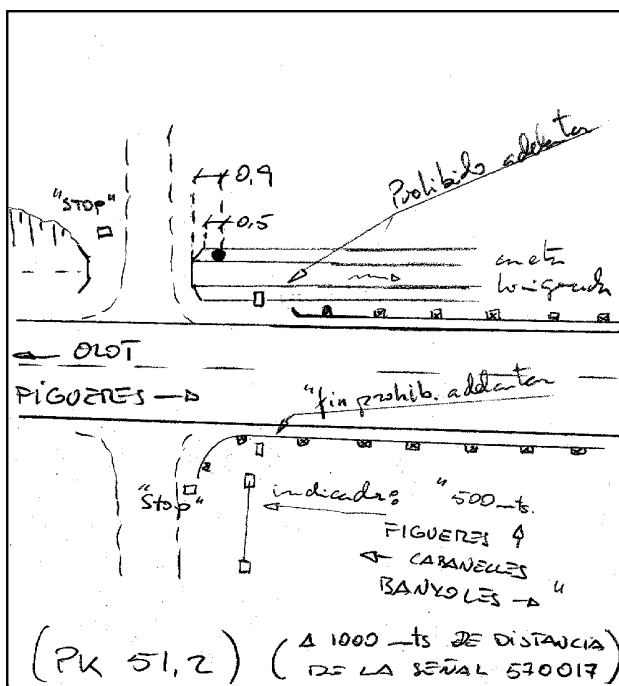 "STOP"
0,9
0,5
Prohibido adelantar
cuneta
OLOT
FIGUERES
"fin prohib. adelantar
"Stop"
indicador: "500 mts.
FIGUERES
CABANELLES
BANYOLES "
(PK 51,2)
(A 1000 mts DE DISTANCIA
DE LA SEÑAL 570017)